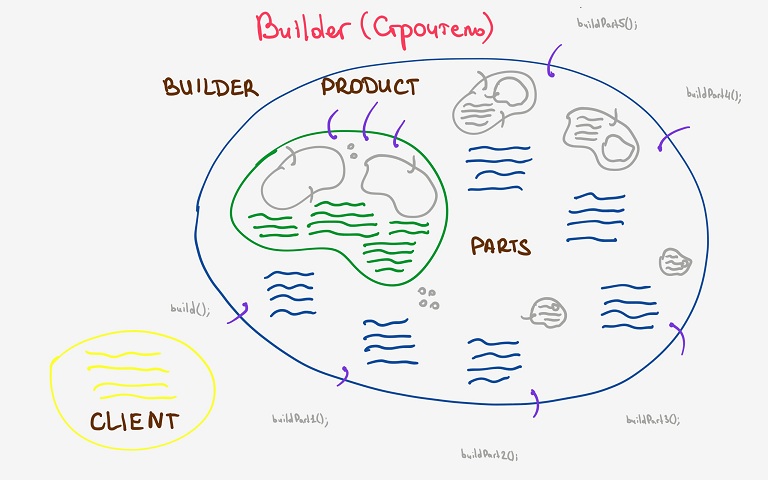 Builder (Строитель)
buildPart5();
BUILDER
PRODUCT
buildPart4();
PARTS
build();
CLIENT
buildPart1();
buildPart3();
buildPart2();